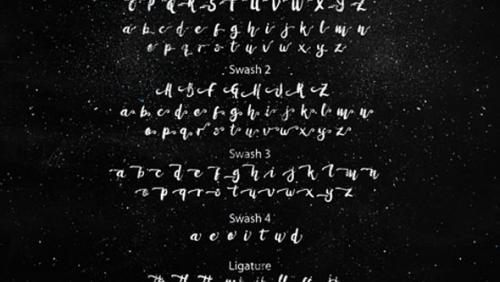 O P Q R S T U V W X Y Z
a b c d e f g h i j k l m n
o p q r s t u v w x y z
Swash 2
a b c d e f g h i j k l m n
o p q r s t u v w x y z
Swash 3
a b c d e f g h i j k l m n
o p q r s t u v w x y z
Swash 4
a e o i t w d
Ligature